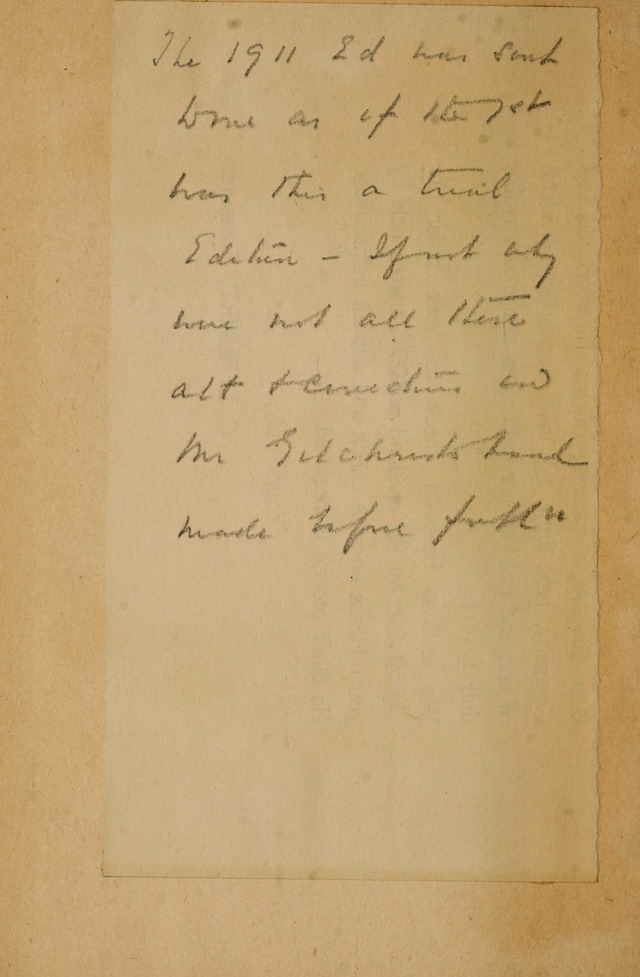 The 1911 Ed was sent
home as of the 7st
was this a trial
Edition - If not why
were not all these
alt & corrections in
Mr Gilchrists hand
made before publn